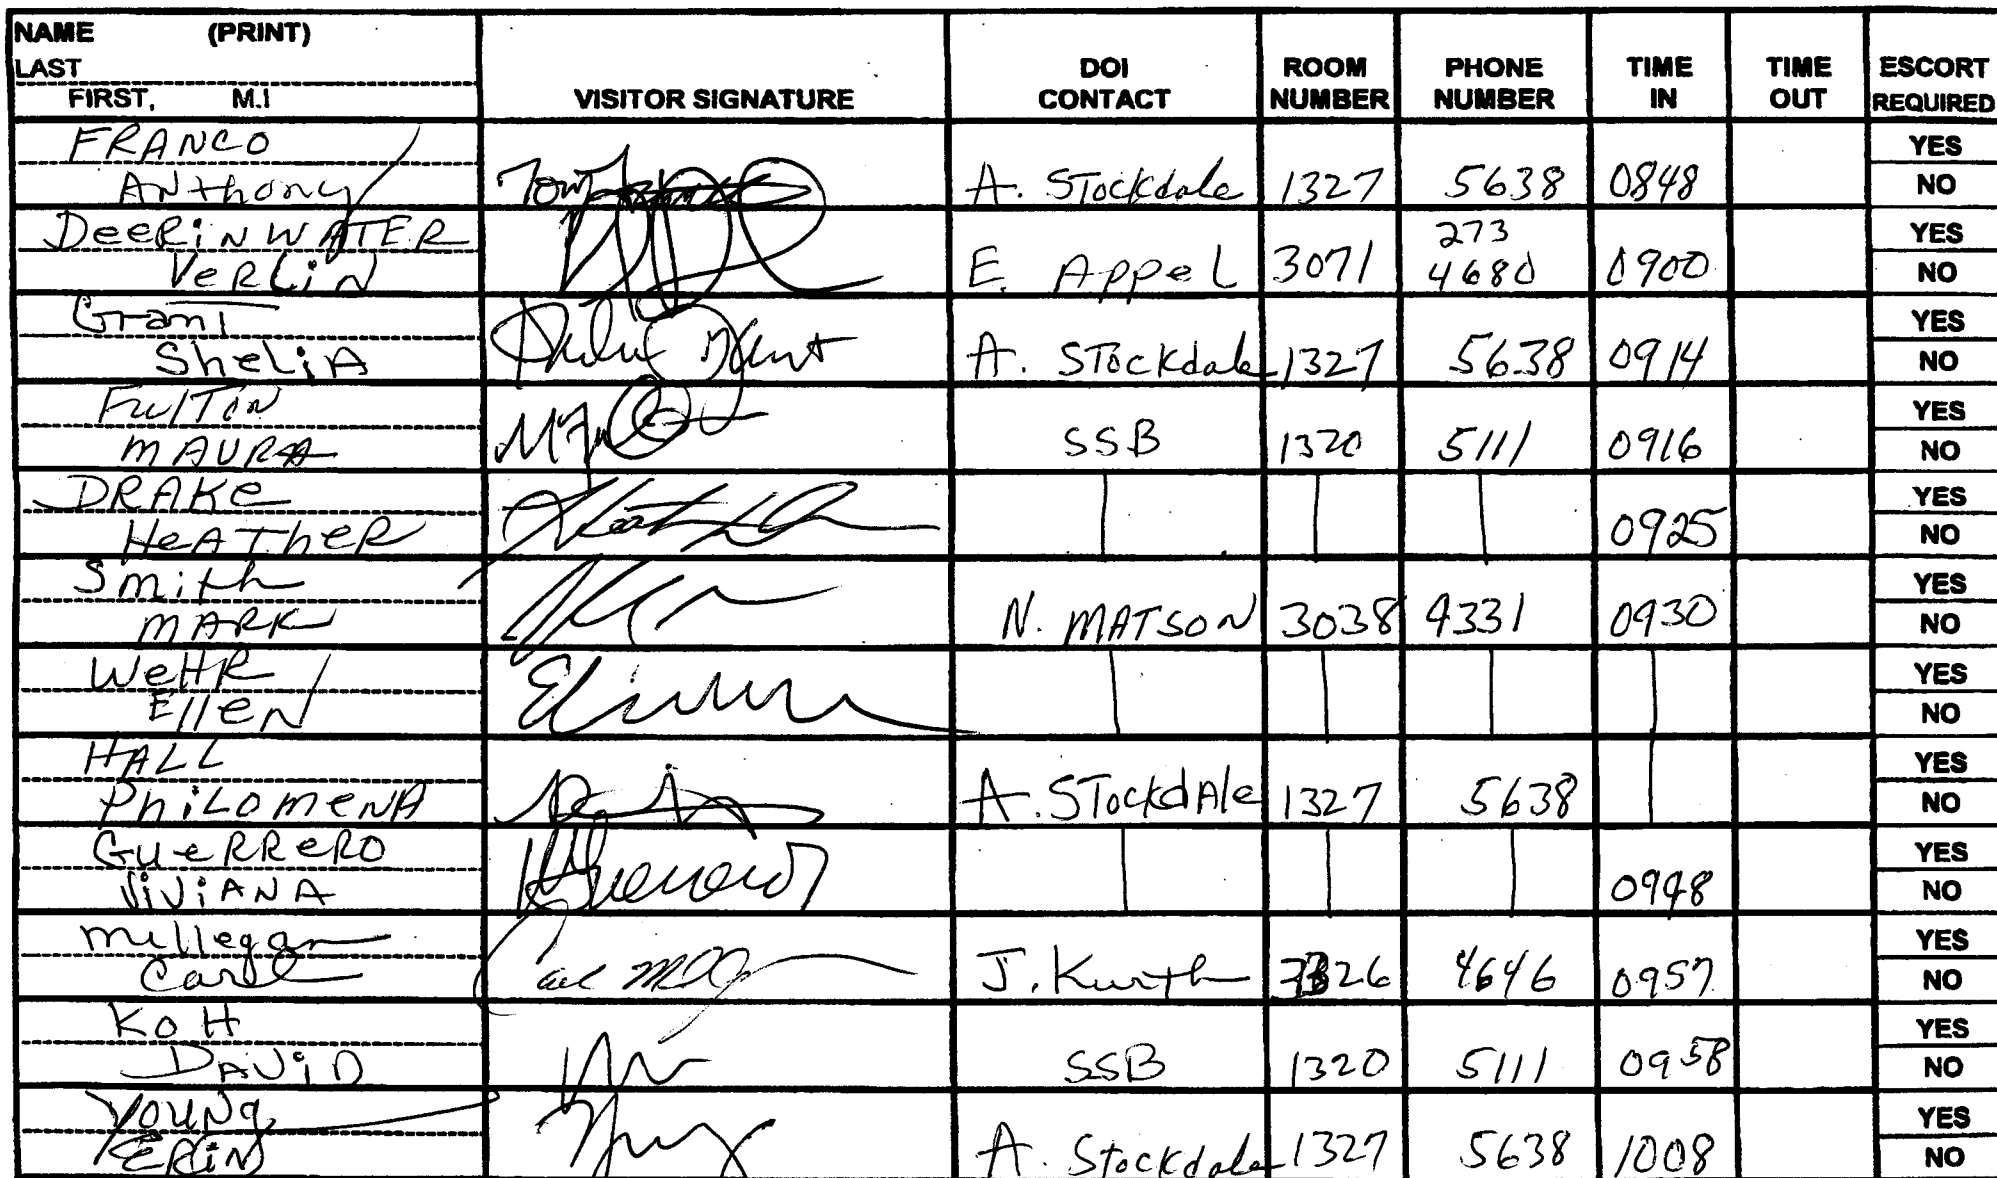 NAME (PRINT)
LAST
FIRST, M.I
VISITOR SIGNATURE
DOI CONTACT
ROOM NUMBER
PHONE NUMBER
TIME IN
TIME OUT
ESCORT REQUIRED
FRANCO YES
ANthony A. Stockdale 1327 5638 0848 NO
DeeRiNWATER 273 YES
VeRLiN E. Appel 3071 4680 0900 NO
Grant YES
SheliA A. Stockdale 1327 5638 0914 NO
FulTon YES
MAURA SSB 1320 5111 0916 NO
DRAKe YES
HeATheR 0925 NO
Smith YES
MARK N. MATSON 3038 4331 0930 NO
WeHR YES
ElleN NO
HALL YES
PhiLomeNA A. STockdAle 1327 5638 NO
GueRReRO YES
ViViANA 0948 NO
Millegan YES
Carl J. Kurth 4646 0957 NO
KoH YES
DAViD SSB 1320 5111 0958 NO
YOUNg YES
ERiN A. Stockdale 1327 5638 1008 NO